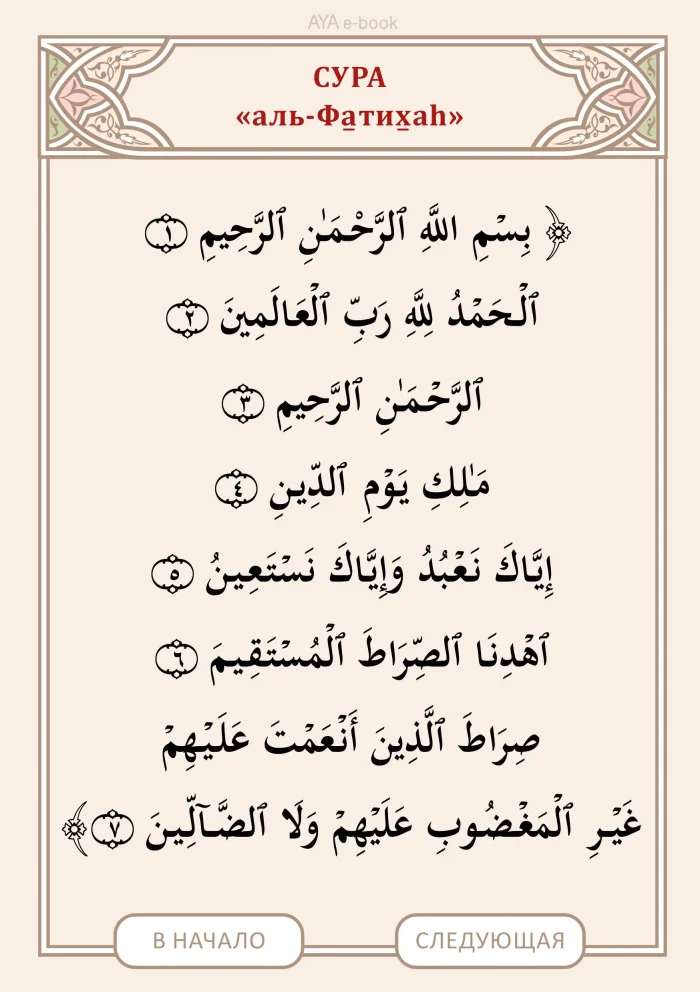 AYA e-book
СУРА
«аль-Фа̱тих̱аһ»
﴿ بِسْمِ اللَّهِ ٱلرَّحْمَـٰنِ ٱلرَّحِيمِ ١
ٱلْحَمْدُ لِلَّهِ رَبِّ ٱلْعَالَمِينَ ٢
ٱلرَّحْمَـٰنِ ٱلرَّحِيمِ ٣
مَـٰلِكِ يَوْمِ ٱلدِّينِ ٤
إِيَّاكَ نَعْبُدُ وَإِيَّاكَ نَسْتَعِينُ ٥
ٱهْدِنَا ٱلصِّرَاطَ ٱلْمُسْتَقِيمَ ٦
صِرَاطَ ٱلَّذِينَ أَنْعَمْتَ عَلَيْهِمْ
غَيْرِ ٱلْمَغْضُوبِ عَلَيْهِمْ وَلَا ٱلضَّآلِّينَ ٧ ﴾
В НАЧАЛО СЛЕДУЮЩАЯ